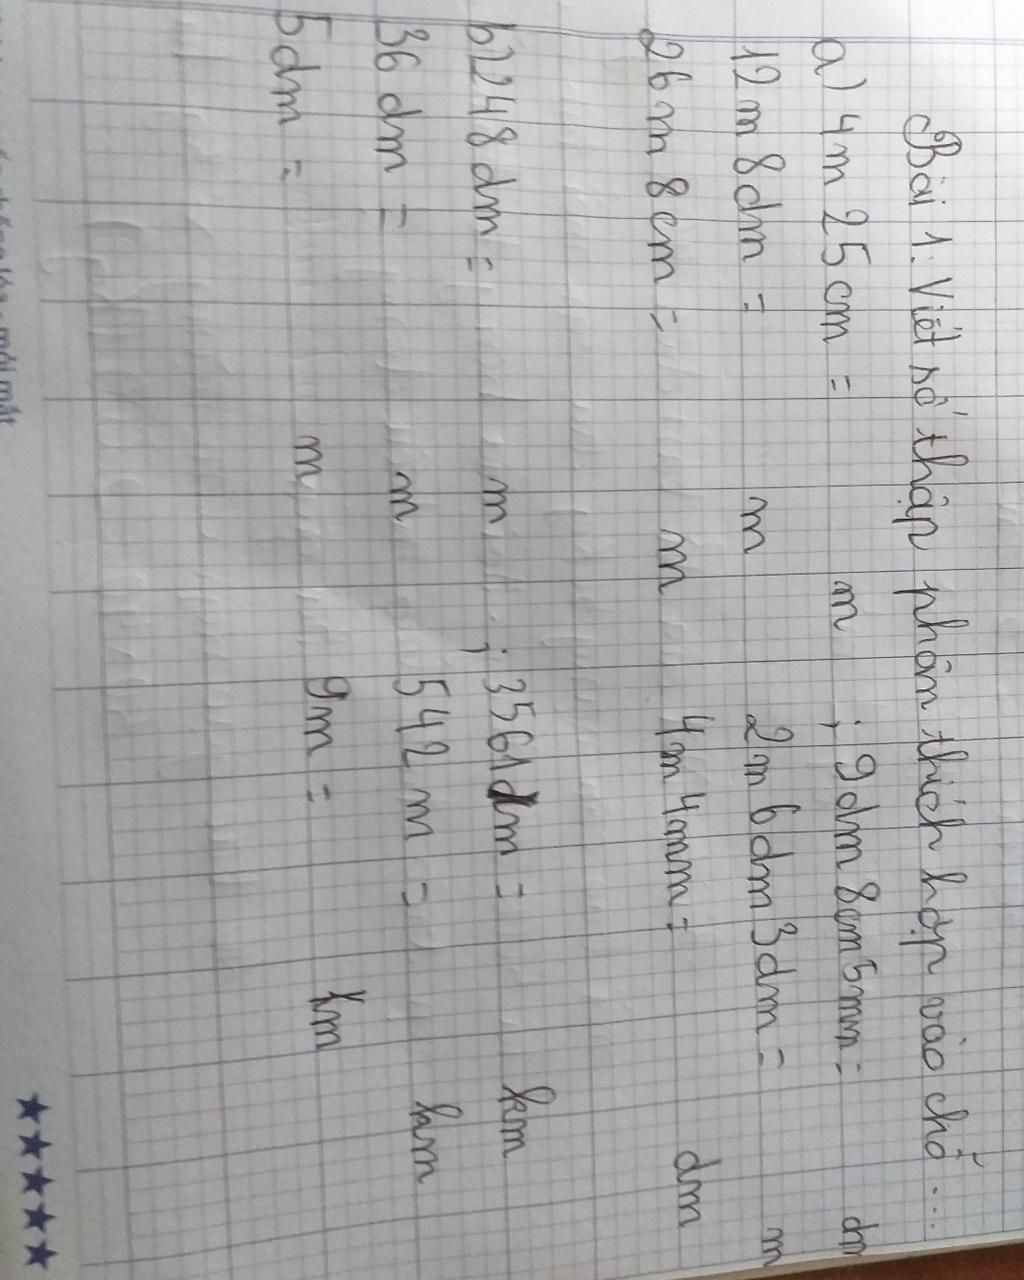 Bài 1: Viết số thập phân thích hợp vào chỗ ....
a) 4m 25cm = m ; 9dm 8cm 5mm = dm
12m 8dm = m 2m 6dm 3dm = m
26m 8cm = m 4m 4mm = dm
b) 248dm = m ; 3561dm = km
36dm = m 542m = km
5dm = m 9m = km